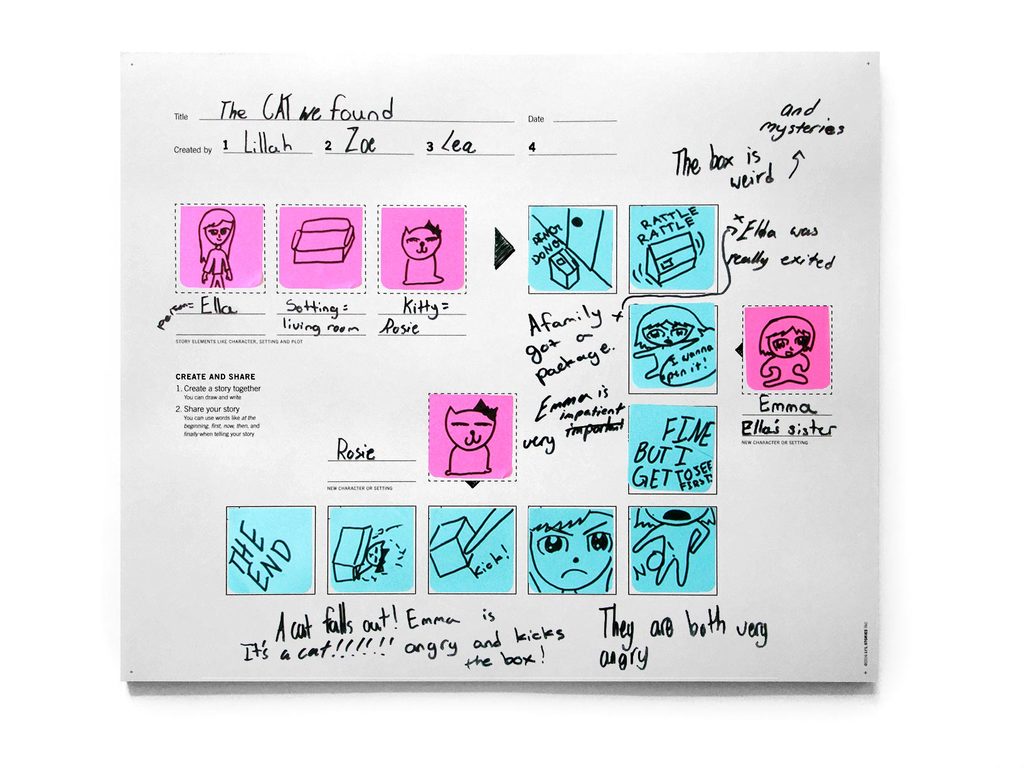 Title The CAT we found
Date
Created by 1 Lillah 2 Zoe 3 Lea 4
and
mysteries
The box is
weird
person= Ella
Sotting=
living room
Kitty=
Rosie
STORY ELEMENTS LIKE CHARACTER, SETTING AND PLOT
DING DONG
RATTLE
RATTLE
Ella was
really exited
A family
got a
package.
I wanna
opn it!
Emma is
impatient
very important
Emma
Ella's sister
NEW CHARACTER OR SETTING
CREATE AND SHARE
1. Create a story together
You can draw and write
2. Share your story
You can use words like at the
beginning, first, now, then, and
finally when telling your story
Rosie
NEW CHARACTER OR SETTING
FINE
BUT I
GET TO SEE
FIRST!
NO
Kick!
THE
END
A cat falls out!
It's a cat!!!!!!
Emma is
angry and kicks
the box!
They are both very
angry